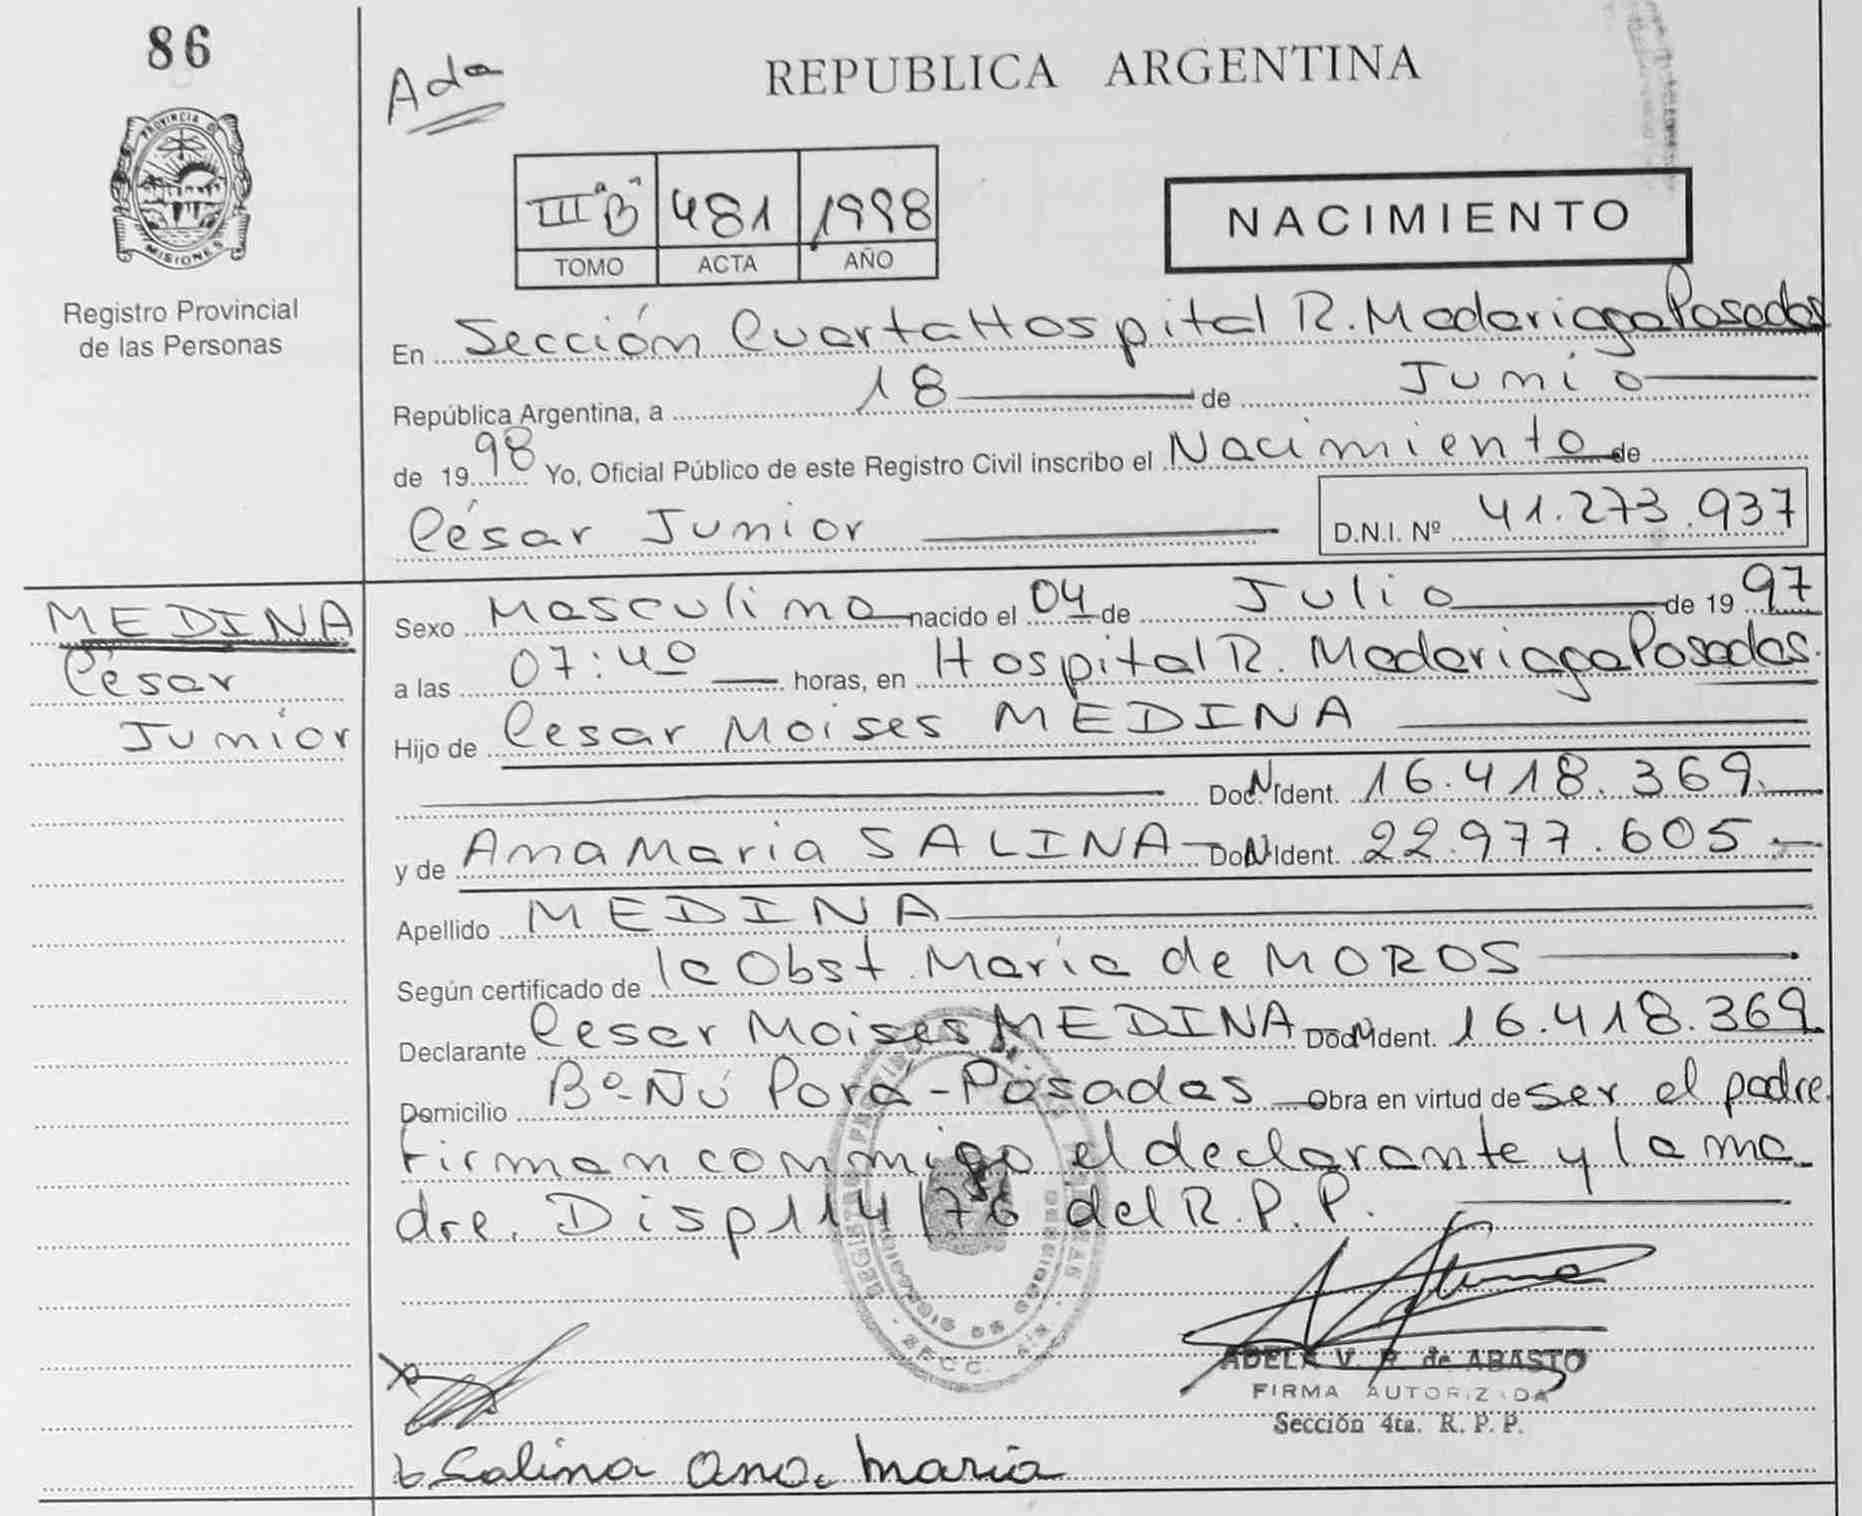 86
Ada
REPUBLICA ARGENTINA
PROVINCIA DE
MISIONES
Registro Provincial
de las Personas
III "B" 481 1998
TOMO ACTA AÑO
NACIMIENTO
En Sección Cuarta Hospital R. Madariaga Posadas
República Argentina, a 18 de Junio
de 1998 Yo, Oficial Público de este Registro Civil inscribo el Nacimiento de
César Junior
D.N.I. Nº 41.273.937
MEDINA
César
Junior
Sexo Masculino nacido el 04 de Julio de 1997
a las 07:40 horas, en Hospital R. Madariaga Posadas.
Hijo de Cesar Moises MEDINA
Doc. N Ident. 16.418.369.
y de Ana Maria SALINA Doc. N Ident. 22.977.605
Apellido MEDINA
Según certificado de la Obst. Maria de MOROS
Declarante Cesar Moises MEDINA Doc. N Ident. 16.418.369
Domicilio Bº Ñú Porá - Posadas Obra en virtud de ser el padre.
Firman conmigo el declarante y la ma-
dre. Disp 114/76 del R.P.P.
ADELA V. P. de ABASTO
FIRMA AUTORIZADA
Sección 4ta. R. P. P.
Salina Ana Maria